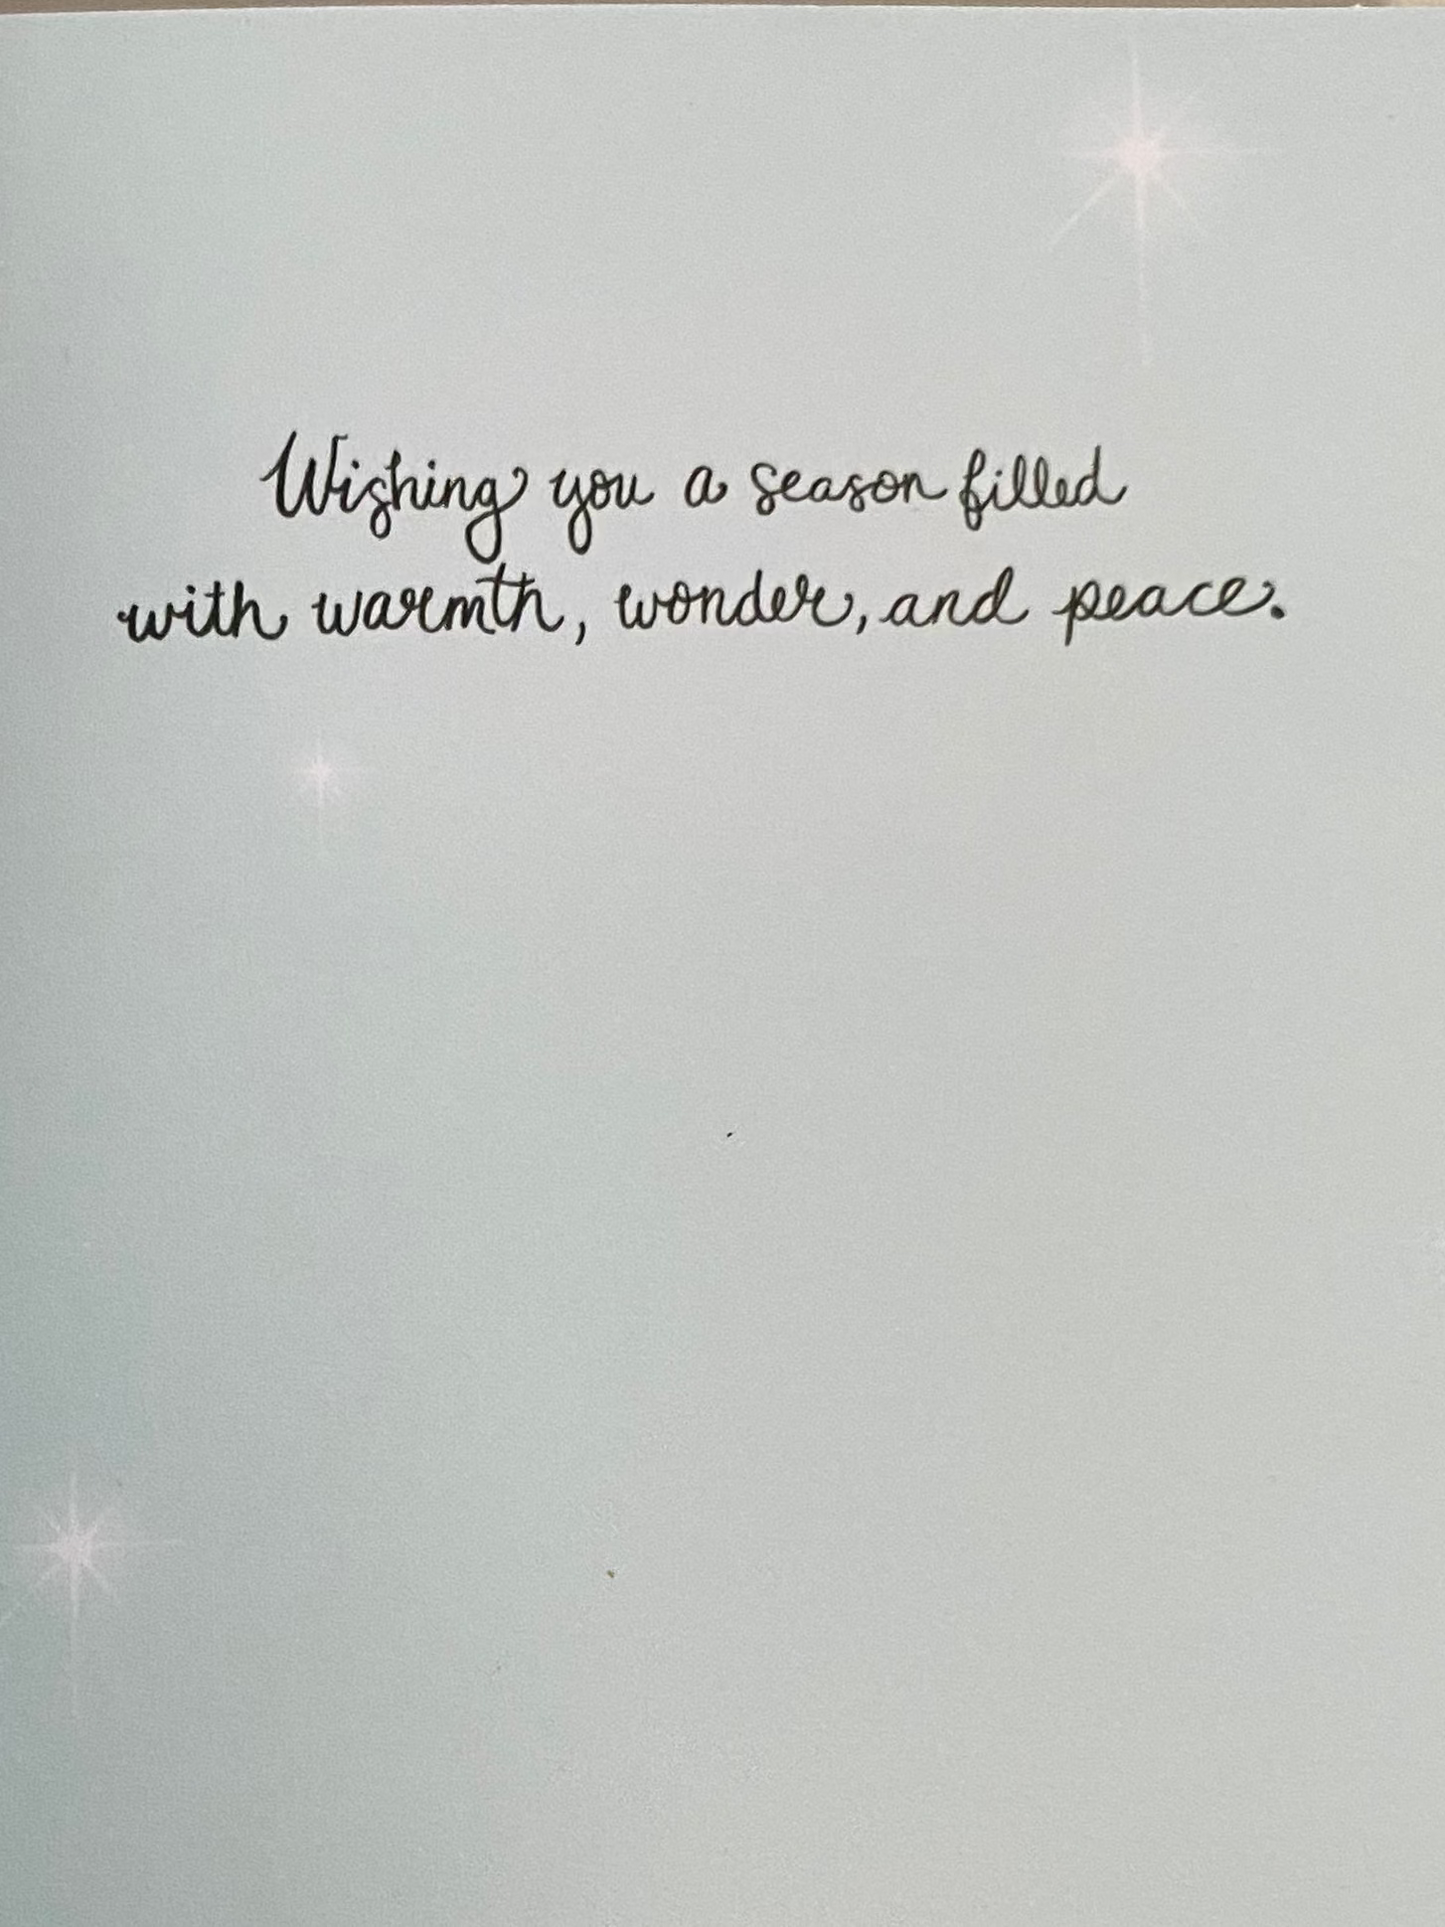 Wishing you a season filled
with warmth, wonder, and peace.